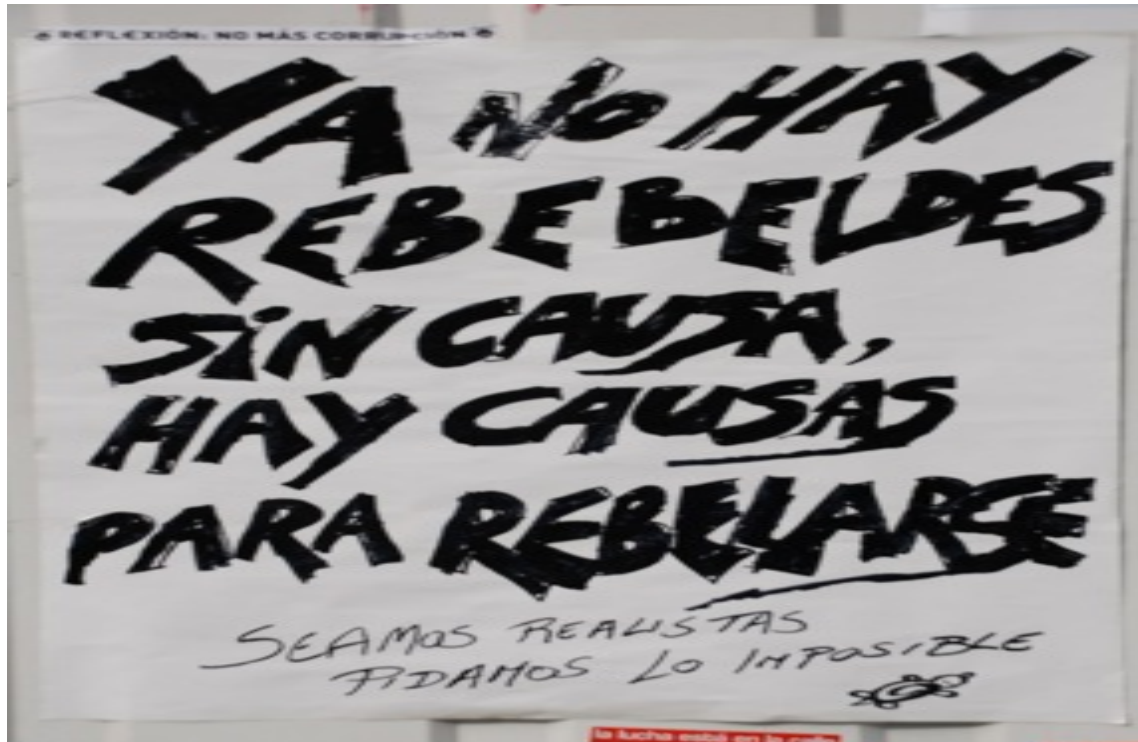 REFLEXIÓN: NO MÁS CORRUPCIÓN
YA NO HAY
REBEBELDES
SiN CAUSA,
HAY CAUSAS
PARA REBELARSE
SEAMOS REALISTAS
PIDAMOS LO IMPOSIBLE
la lucha está en la calle